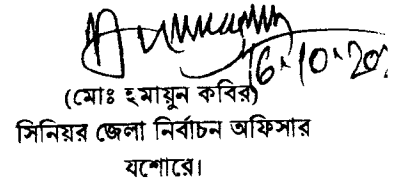 16.10.202
(মোঃ হুমায়ুন কবির)
সিনিয়র জেলা নির্বাচন অফিসার
যশোরে।